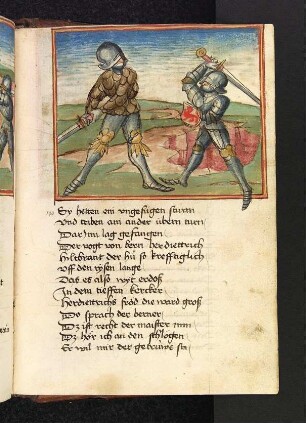 Sy hetten ein ungefügen sturm
Und triben ain ander übern turn
Dar Inn lag gefangen
Der vogt von bern her diettrich
Hiltprant der hiu so kreffticlich
Uff den rysen lange
Das es also wyt erdoß
In dem tieffen kercker
Herdiettrichs fröd die ward groß
Do sprach der berner
Dz ist recht der maister min
Dz hör ich an den schlegen
Er wil mir der gehulffe sin